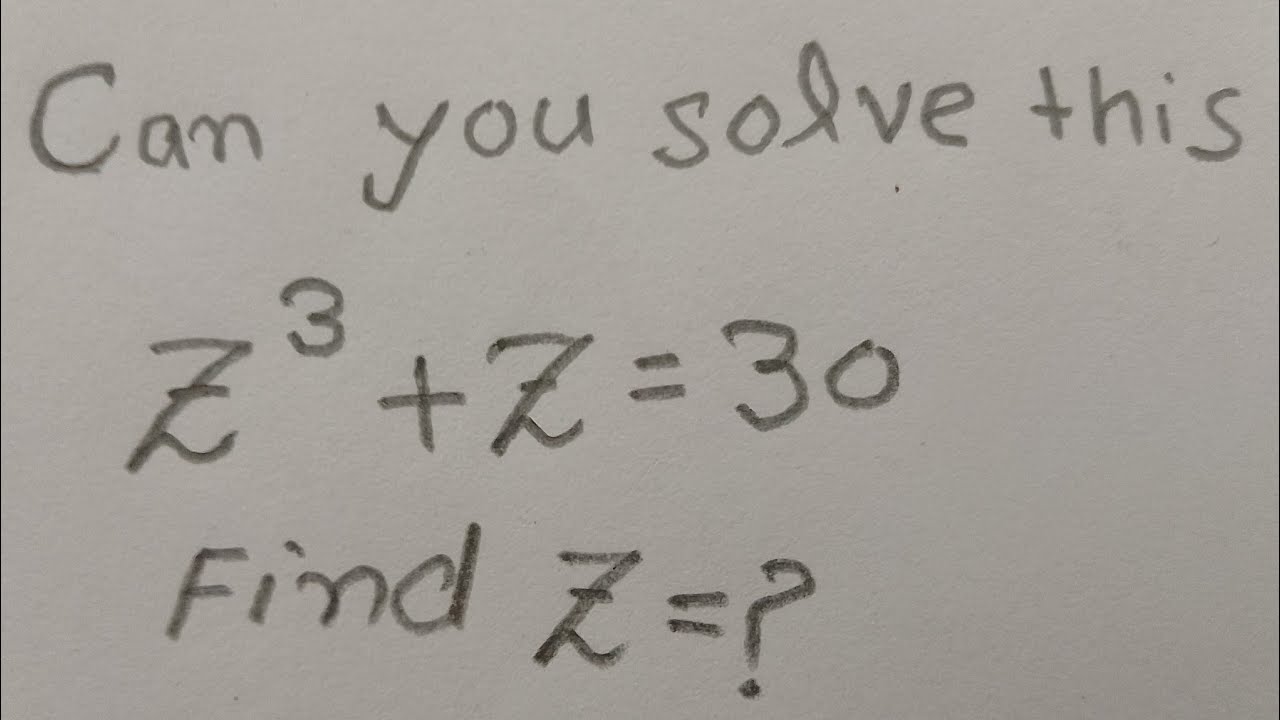 Can you solve this
z³+z=30
Find z=?